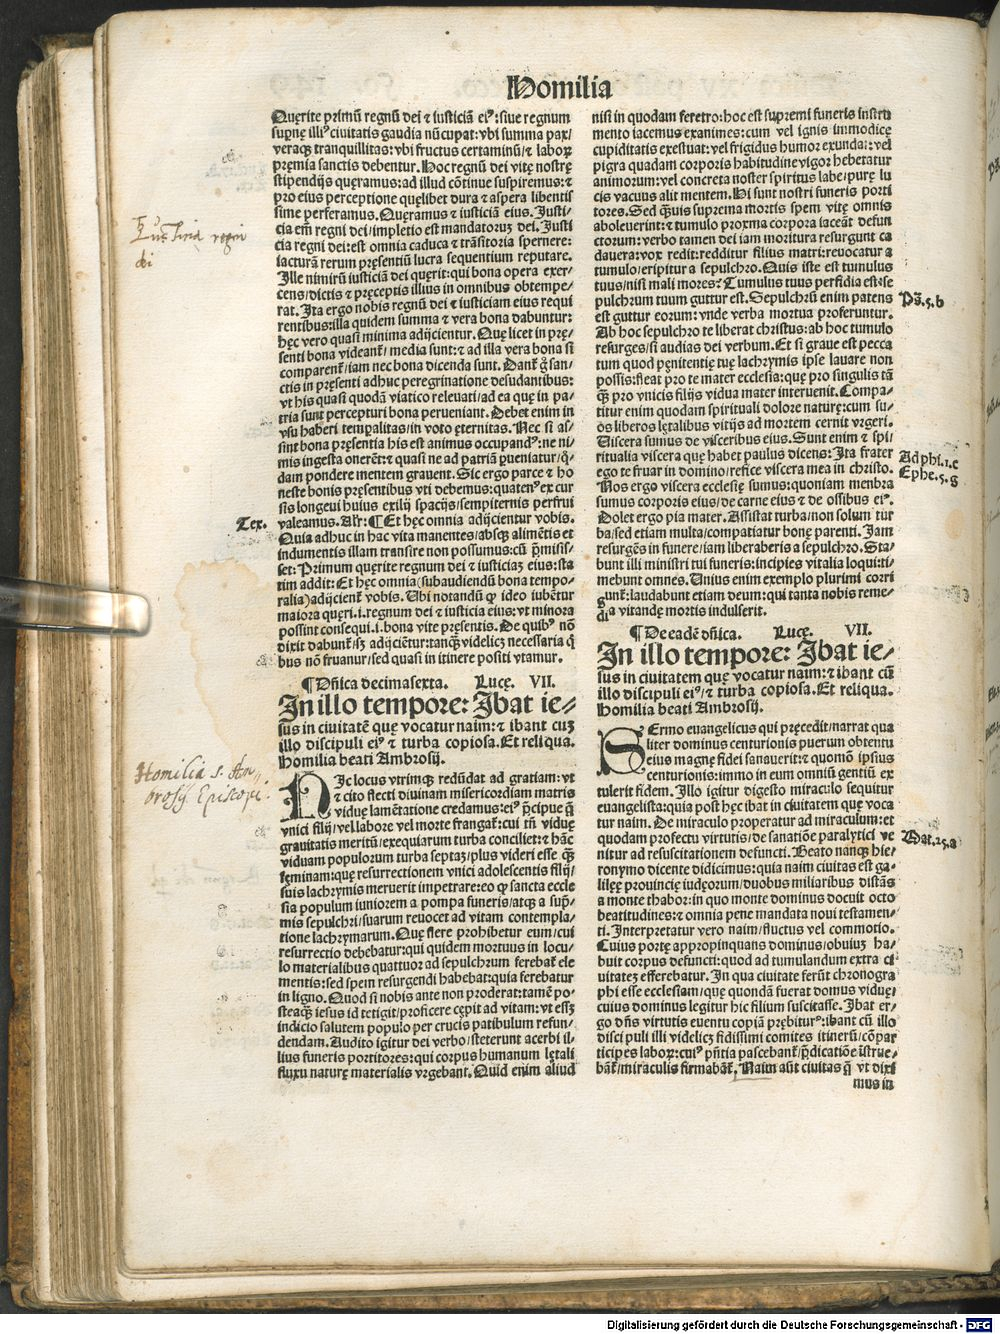 Homilia
Quęrite primũ regnũ dei ⁊ iusticiã eiꝰ: siue regnum
supnę illiꝰ ciuitatis gaudia nũcupat: vbi summa pax/
veraqꝫ tranquillitas: vbi fructus certaminũ/⁊ laborꝝ
pręmia sanctis debentur. Hoc regnũ dei vitę nostrę
stipendijs quęramus: ad illud cõtinue suspiremus: ⁊
pro eius perceptione quęlibet dura ⁊ aspera libentis
sime perferamus. Quęramus ⁊ iusticiã eius. Justi/
cia em̃ regni dei/impletio est mandatoruꝫ dei. Justi
cia regni dei: est omnia caduca ⁊ trãsitoria spernere:
iacturã rerum pręsentiũ lucra sequentium reputare.
Ille nimirũ iusticiã dei quęrit: qui bona opera exer/
cens/dictis ⁊ pręceptis illius in omnibus obtempe/
rat. Ita ergo nobis regnũ dei ⁊ iusticiam eius requi
rentibus: illa quidem summa ⁊ vera bona dabuntur:
hęc vero quasi minima adijcientur. Quę licet in prę/
senti bona videant̃/media sunt: ⁊ ad illa vera bona si
comparent̃/iam nec bona dicenda sunt. Dant̃ g̃ san/
ctis in pręsenti adhuc peregrinatione desudantibus:
vt his quasi quodã viatico releuati/ad ea quę in pa/
tria sunt percepturi bona perueniant. Debet enim in
vsu haberi tempalitas/in voto ęternitas. Nec si as/
sint bona pręsentia his est animus occupandꝰ: ne ni/
mis ingesta onerẽt: ⁊ quasi ne ad patriã pueniatur/q̃/
dam pondere mentem grauent. Sic ergo parce ⁊ ho
neste bonis pręsentibus vti debemus: quatenꝰ ex cur
sis longeui huius exilij spacijs/sempiternis perfrui
valeamus. Alr̃: ¶ Et hęc omnia adijcientur vobis.
Quia adhuc in hac vita manentes/absqꝫ alimẽtis et
indumentis illam transire non possumus: cũ p̃misis/
set: Primum quęrite regnum dei ⁊ iusticiaꝫ eius: sta
tim addit: Et hęc omnia (subaudiendũ bona tempo/
ralia) adijcient̃ vobis. Ubi notandũ ꝙ ideo iubẽtur
maiora quęri .i. regnum dei ⁊ iusticia eius: vt minora
possint consequi .i. bona vite pręsentis. De quibꝰ nõ
dixit dabunt̃/sꝫ adijciẽtur: tanqꝫ videlicꝫ necessaria q̃
bus nõ fruanur/sed quasi in itinere positi vtamur.
¶ Dñica decimasexta. Lucę. VII.
In illo tempore: Ibat ie-
sus in ciuitatẽ quę vocatur naim: ⁊ ibant cuꝫ
illo discipuli eiꝰ ⁊ turba copiosa. Et reliqua.
Homilia beati Ambrosij.
HIc locus vtrimqꝫ redũdat ad gratiam: vt
⁊ cito flecti diuinam misericordiam matris
viduę lamẽtatione credamus: eiꝰ p̃cipue q̃
vnici filij/vel labore vel morte frangat̃: cui tñ viduę
grauitatis meritũ/exequiarum turba conciliet: ⁊ hãc
viduam populorum turba septaꝫ/plus videri esse qꝫ
fęminam: quę resurrectionem vnici adolescentis filij/
suis lachrymis meruerit impetrare: eo ꝙ sancta eccle
sia populum iuniorem a pompa funeris/atqꝫ a sup̃/
mis sepulchri/suarum reuocet ad vitam contempla/
tione lachrymarum. Quę flere prohibetur eum/cui
resurrectio debebatur: qui quidem mortuus in locu/
lo materialibus quattuor ad sepulchrum ferebat̃ ele
mentis: sed spem resurgendi habebat: quia ferebatur
in ligno. Quod si nobis ante non proderat: tamẽ po/
steaqꝫ iesus id tetigit/proficere cępit ad vitam: vt essꝫ
indicio salutem populo per crucis patibulum refun/
dendam. Audito igitur dei verbo/steterunt acerbi il/
lius funeris portitores: qui corpus humanum lętali
fluxu naturę materialis vrgebant. Quid enim aliud
nisi in quodam feretro: hoc est supremi funeris instru
mento iacemus exanimes: cum vel ignis immodicę
cupiditatis exestuat: vel frigidus humor exundat: vel
pigra quadam corporis habitudine vigor hebetatur
animorum: vel concreta noster spiritus labe/purę lu
cis vacuus alit mentem. Hi sunt nostri funeris porti
tores. Sed q̃uis suprema mortis spem vitę omnis
aboleuerint: ⁊ tumulo proxma corpora iaceãt defun
ctorum: verbo tamen dei iam moritura resurgunt ca
dauera: vox redit: redditur filius matri: reuocatur a
tumulo/eripitur a sepulchro. Quis iste est tumulus
tuus/nisi mali mores? Cumulus tuus perfidia est: se
pulchrum tuum guttur est. Sepulchrũ enim patens
est guttur eorum: vnde verba mortua proferuntur.
Ab hoc sepulchro te liberat christus: ab hoc tumulo
resurges/si audias dei verbum. Et si graue est pecca
tum quod pęnitentię tuę lachrymis ipse lauare non
possis: fleat pro te mater ecclesia: quę pro singulis tã
qꝫ pro vnicis filijs vidua mater interuenit. Compa/
titur enim quodam spirituali dolore naturę: cum su/
os liberos lętalibus vitijs ad mortem cernit vrgeri.
Uiscera sumus de visceribus eius. Sunt enim ⁊ spi/
ritualia viscera quę habet paulus dicens: Ita frater
ego te fruar in domino/refice viscera mea in christo.
Nos ergo viscera ecclesię sumus: quoniam menbra
sumus corporis eius/de carne eius ⁊ de ossibus eiꝰ.
Dolet ergo pia mater. Assistat turba/non solum tur
ba/sed etiam multa/compatiatur bonę parenti. Jam
resurgẽs in funere/iam liberaberis a sepulchro. Sta/
bunt illi ministri tui funeris: incipies vitalia loqui: ti/
mebunt omnes. Unius enim exemplo plurimi corri
gunt̃: laudabunt etiam deum: qui tanta nobis reme/
dia vitandę mortis indulserit.
¶ De eadẽ dñica. Lucę. VII.
In illo tempore: Ibat ie-
sus in ciuitatem quę vocatur naim: ⁊ ibant cũ
illo discipuli eiꝰ/⁊ turba copiosa. Et reliqua.
Homilia beati Ambrosij.
SErmo euangelicus qui pręcedit/narrat qua
liter dominus centurionis puerum obtentu
eius magnę fidei sanauerit: ⁊ quomõ ipsius
centurionis: immo in eum omniũ gentiũ ex
tulerit fidem. Illo igitur digesto miraculo sequitur
euangelista: quia post hęc ibat in ciuitatem quę voca
tur naim. De miraculo properatur ad miraculum: et
quodam profectu virtutis/de sanatiõe paralytici ve
nitur ad resuscitationem defuncti. Beato nanqꝫ hie/
ronymo dicente didicimus: quia naim ciuitas est ga/
lilęę prouincię iudęorum/duobus miliaribus distãs
a monte thabor: in quo monte dominus docuit octo
beatitudines: ⁊ omnia pene mandata noui testamen/
ti. Interpretatur vero naim/fluctus vel commotio.
Cuius portę appropinquans dominus/obuiuꝫ ha/
buit corpus defuncti: quod ad tumulandum extra ci
uitateꝫ efferebatur. In qua ciuitate ferũt chronogra/
phi esse ecclesiam/quę quondã fuerat domus viduę:
cuius dominus legitur hic filium suscitasse. Ibat er/
go dñs virtutis euentu copiã prębiturꝰ: ibant cũ illo
discipuli illi videlicꝫ fidissimi comites itinerũ/cõpar
ticipes laborꝝ: cuiꝰ p̃ntia pascebant̃/p̃dicatiõe ĩstrue/
bãt̃/miraculis firmabãt̃. Naim aũt ciuitas q̃ vt dixi
mus in
Iusticia regni
dei
Tex.
Homilia s. Am
brosij Episcopi.
Ps̃. 5. b
Ad phi. 1. c
Ephe. 5. g
Mat. 25. a
Digitalisierung gefördert durch die Deutsche Forschungsgemeinschaft - DFG